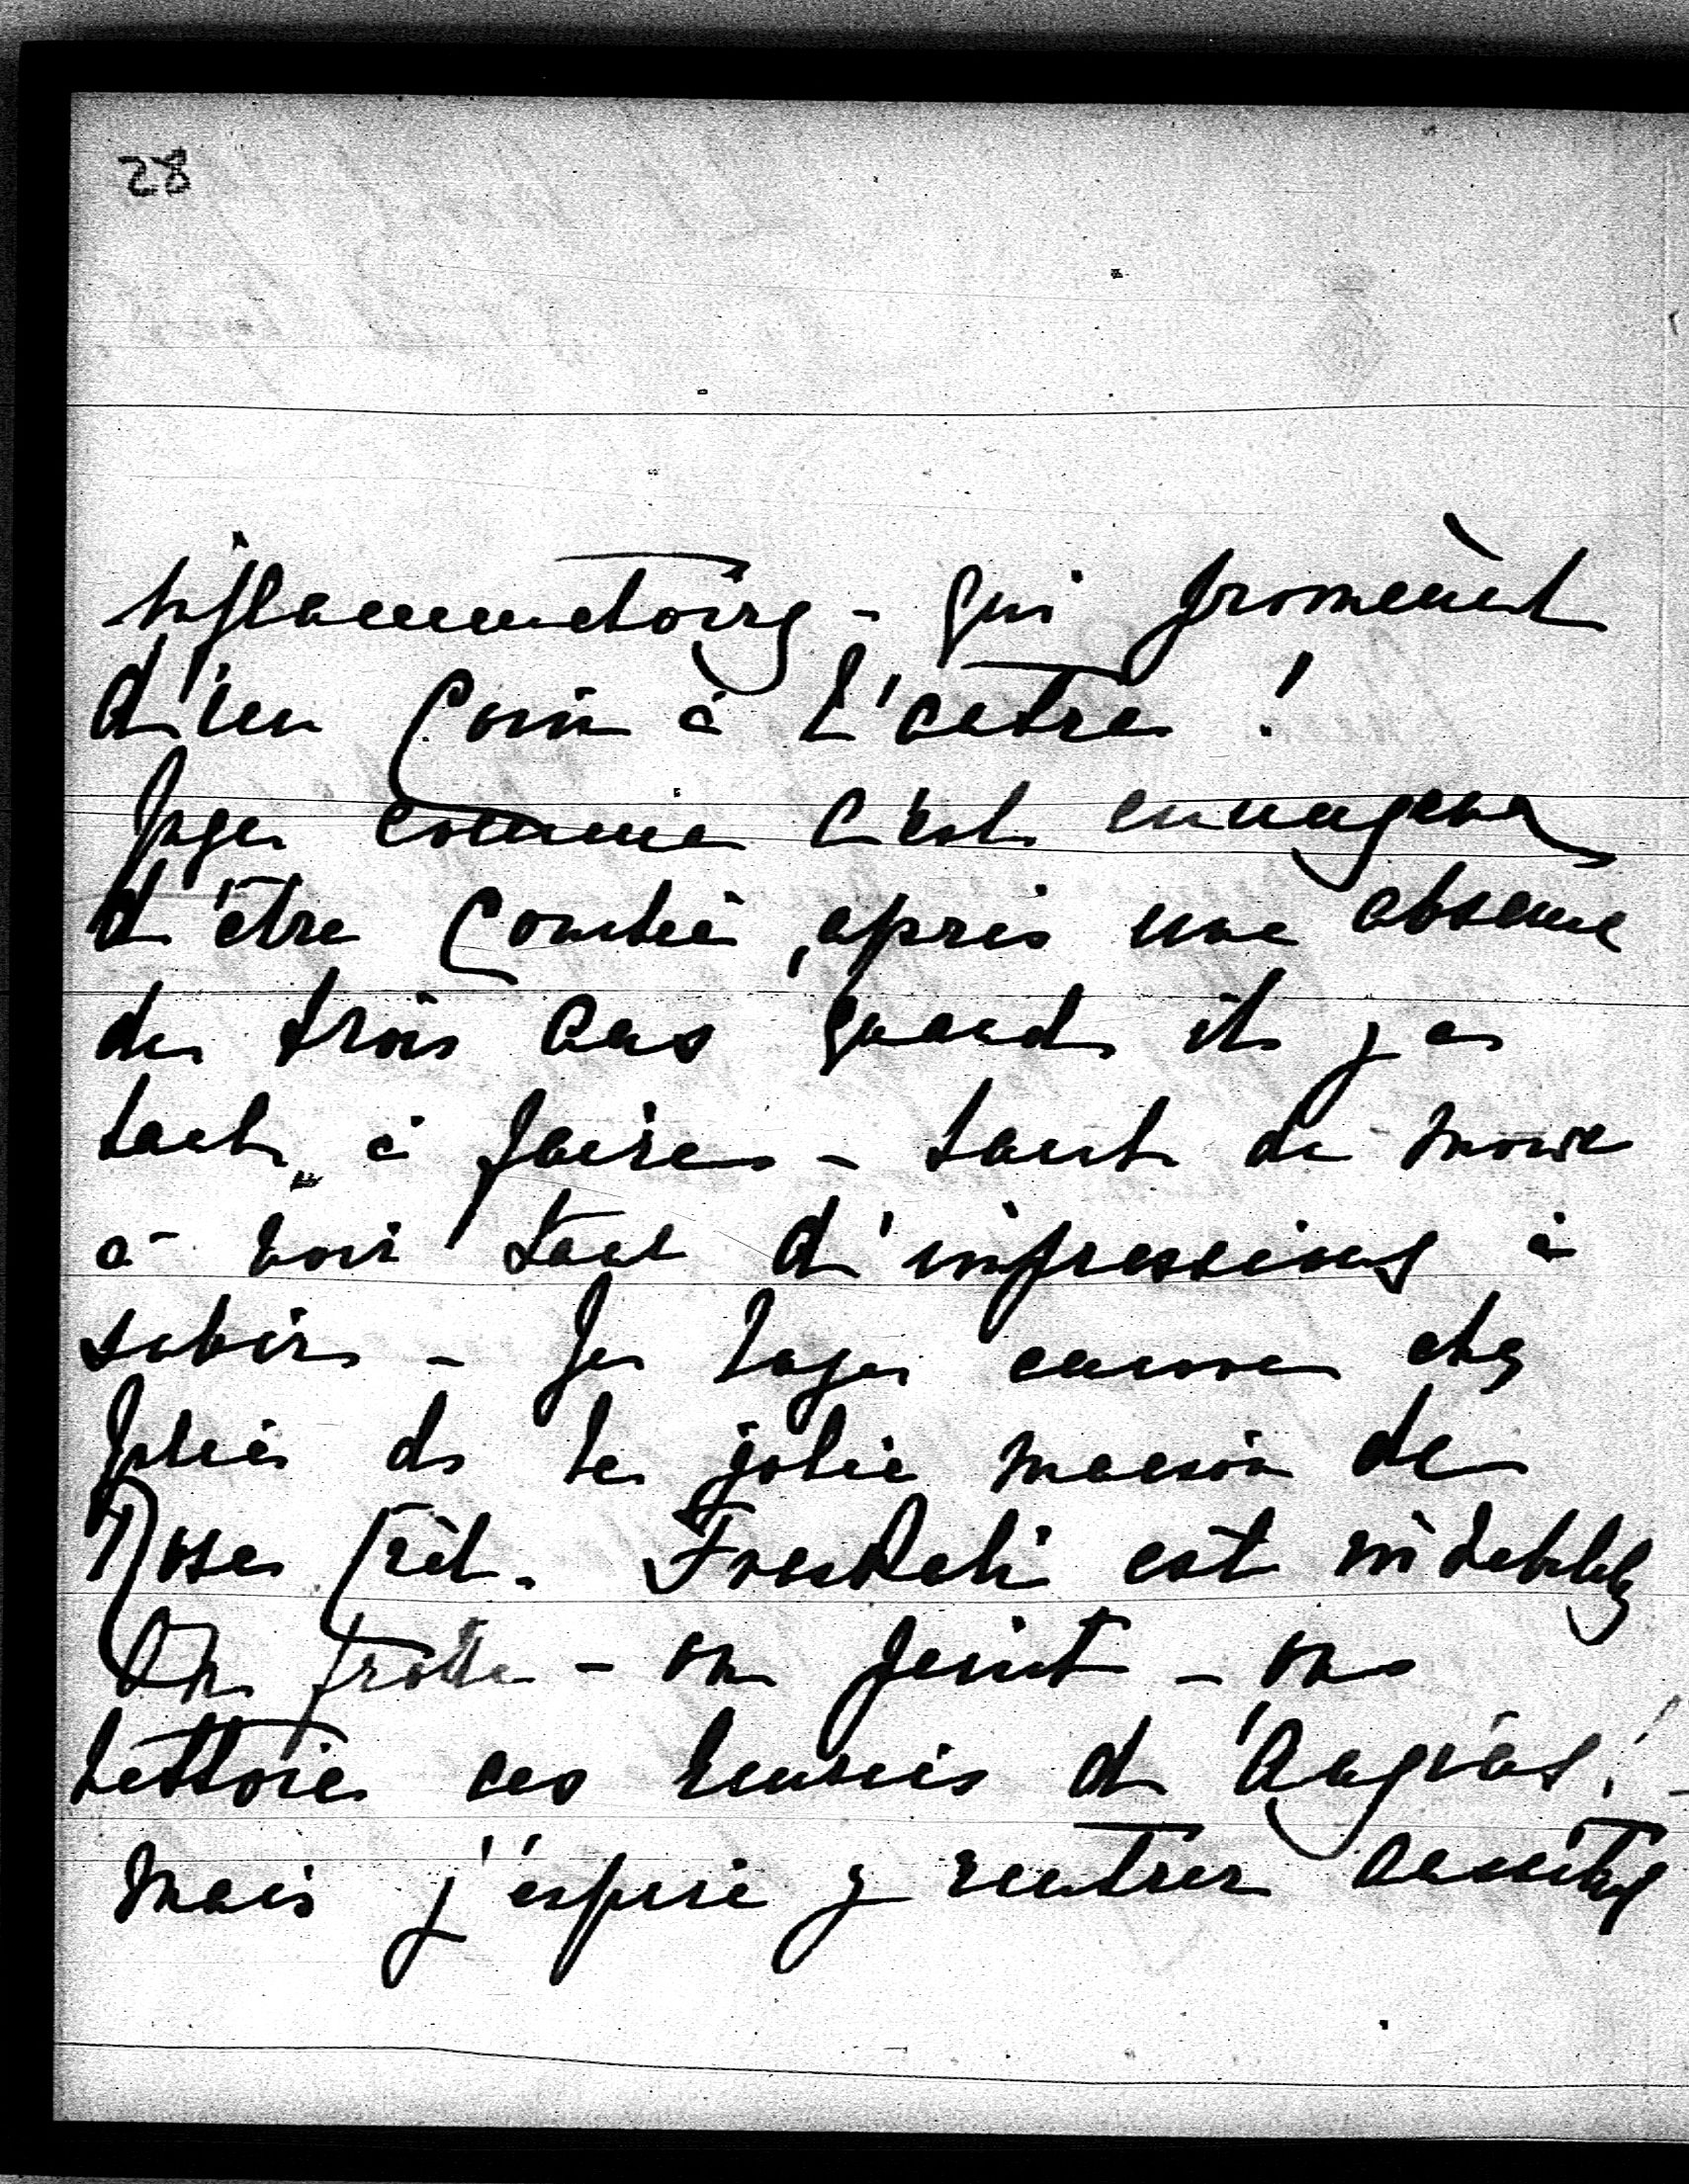 28
inflammatoires - qui promènent
d'un coin à l'autre!
Juge comme c'est enrageant
d'être couchée, après une absence
de trois ans quand il y a
tant à faire - tant de monde
à voir tant d'impressions à
subir - Je loge encore chez
Julie ds la jolie maison de
Rose Crêt. Freskati est inhabitable
On frotte - on peint - on
nettoie ces écuries d'Augias! -
mais j'espère y rentrer aussitôt